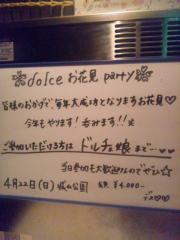 dolce お花見 party
皆様のおかげで、毎年大成功となりますお花見♡
今年もやります！呑みます！！☆
ご参加いただける方は ドルチェ娘まで…♡♡
当日参加も大歓迎なのでぜひ☆
4月22日(日) 城山公園 会費 ¥4,000-